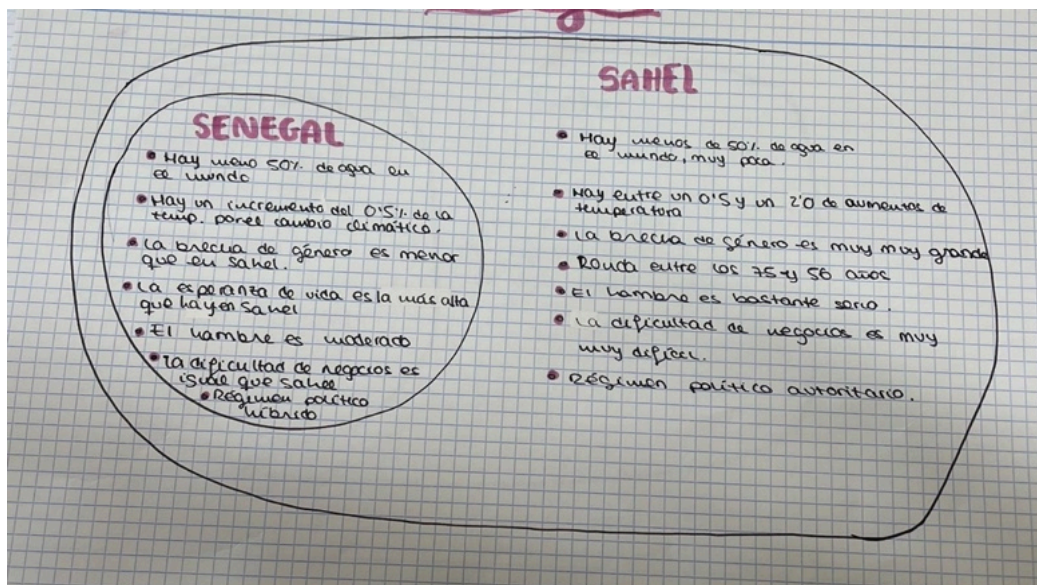 SENEGAL
• Hay meno 50% de agua en
el mundo
• Hay un incremento del 0'5% de la
temp. por el cambio climático.
• La brecha de género es menor
que en Sahel.
• La esperanza de vida es la más alta
que hay en Sahel
• El hambre es moderado
• La dificultad de negocios es
igual que Sahel
• Régimen político
híbrido
SAHEL
• Hay menos de 50% de agua en
el mundo, muy poca.
• Hay entre un 0'5 y un 2'0 de aumentos de
temperatura
• La brecha de género es muy muy grande
• Ronda entre los 75 y 56 años
• El hambre es bastante serio.
• La dificultad de negocios es muy
muy difícil.
• Régimen político autoritario.